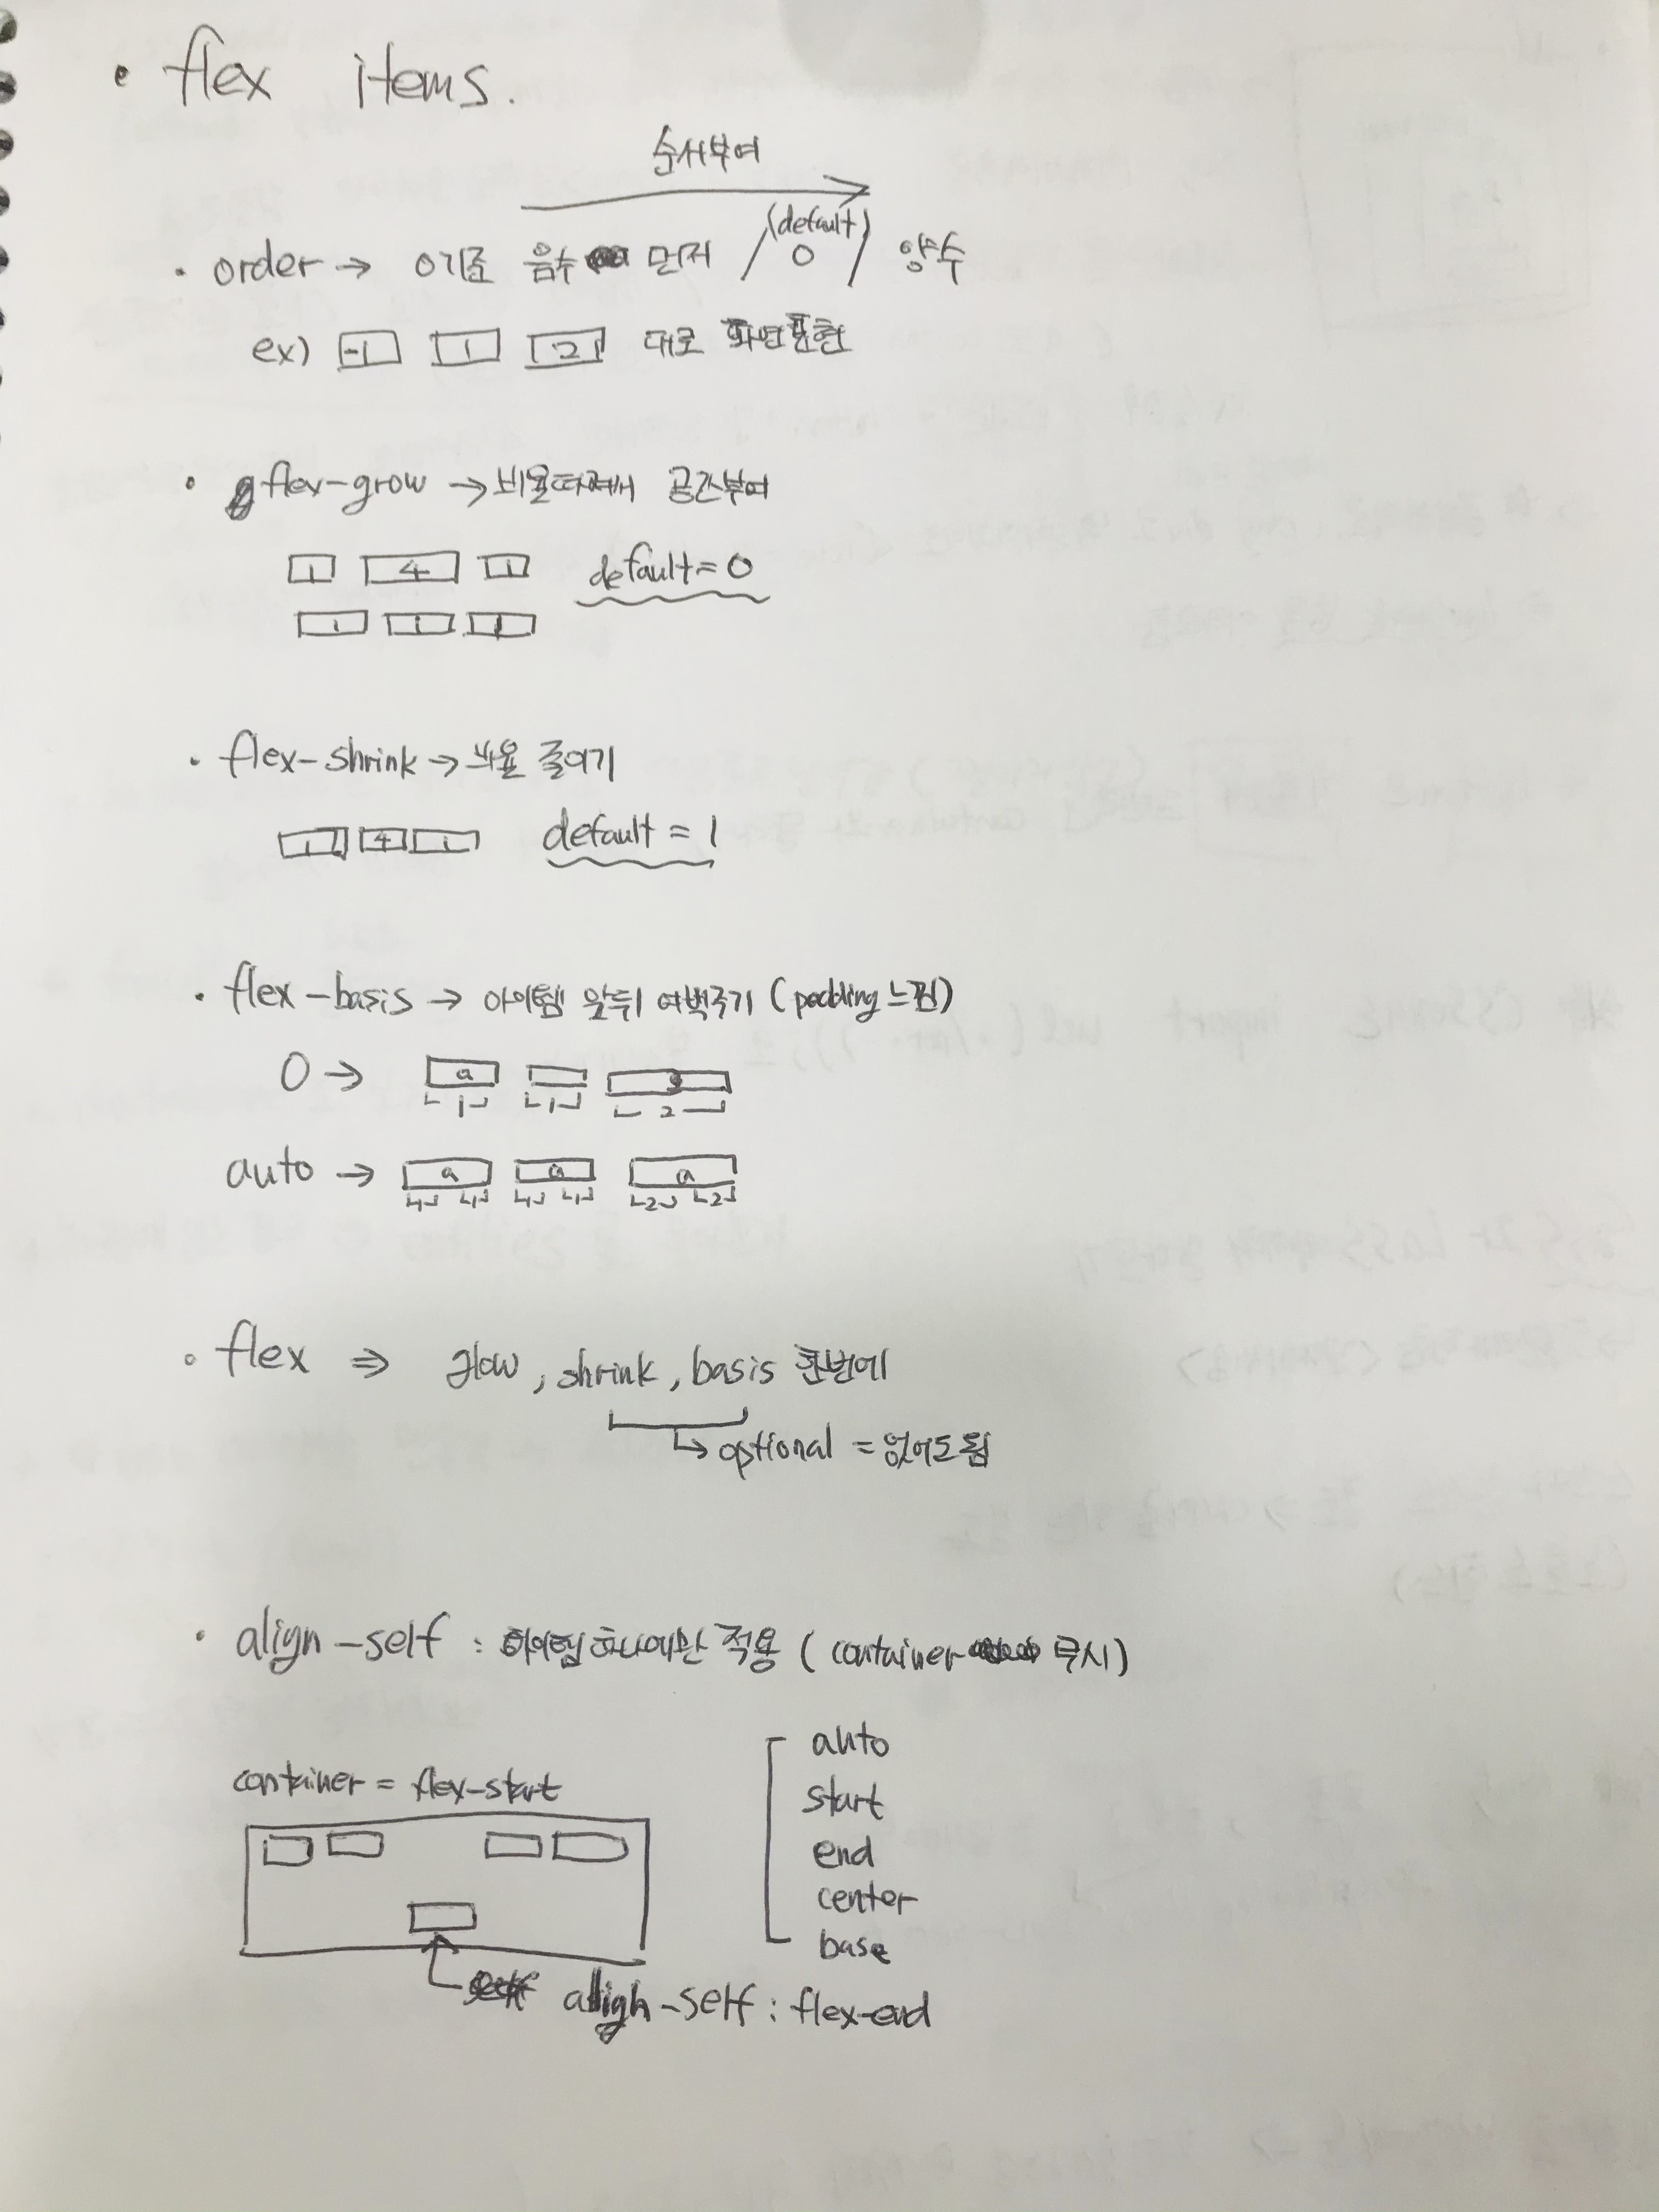 • flex items.
순서부여
(default)
• order → 0기준 음수 먼저 / 0 / 양수
ex) -1 1 2 대로 화면표현
• flex-grow → 비율따져서 공간부여
1 4 1 default = 0
1 1 1
• flex-shrink → 비율 줄이기
1 4 1 default = 1
• flex-basis → 아이템 앞뒤 여백주기 (padding 느낌)
0 → a
1 1 2
auto → a a a
1 1 1 1 2 2
• flex ⇒ grow, shrink, basis 한번에
↳ optional = 없어도됨
• align-self : 아이템 하나에만 적용 (container 무시)
auto
container = flex-start
start
end
center
base
align-self : flex-end